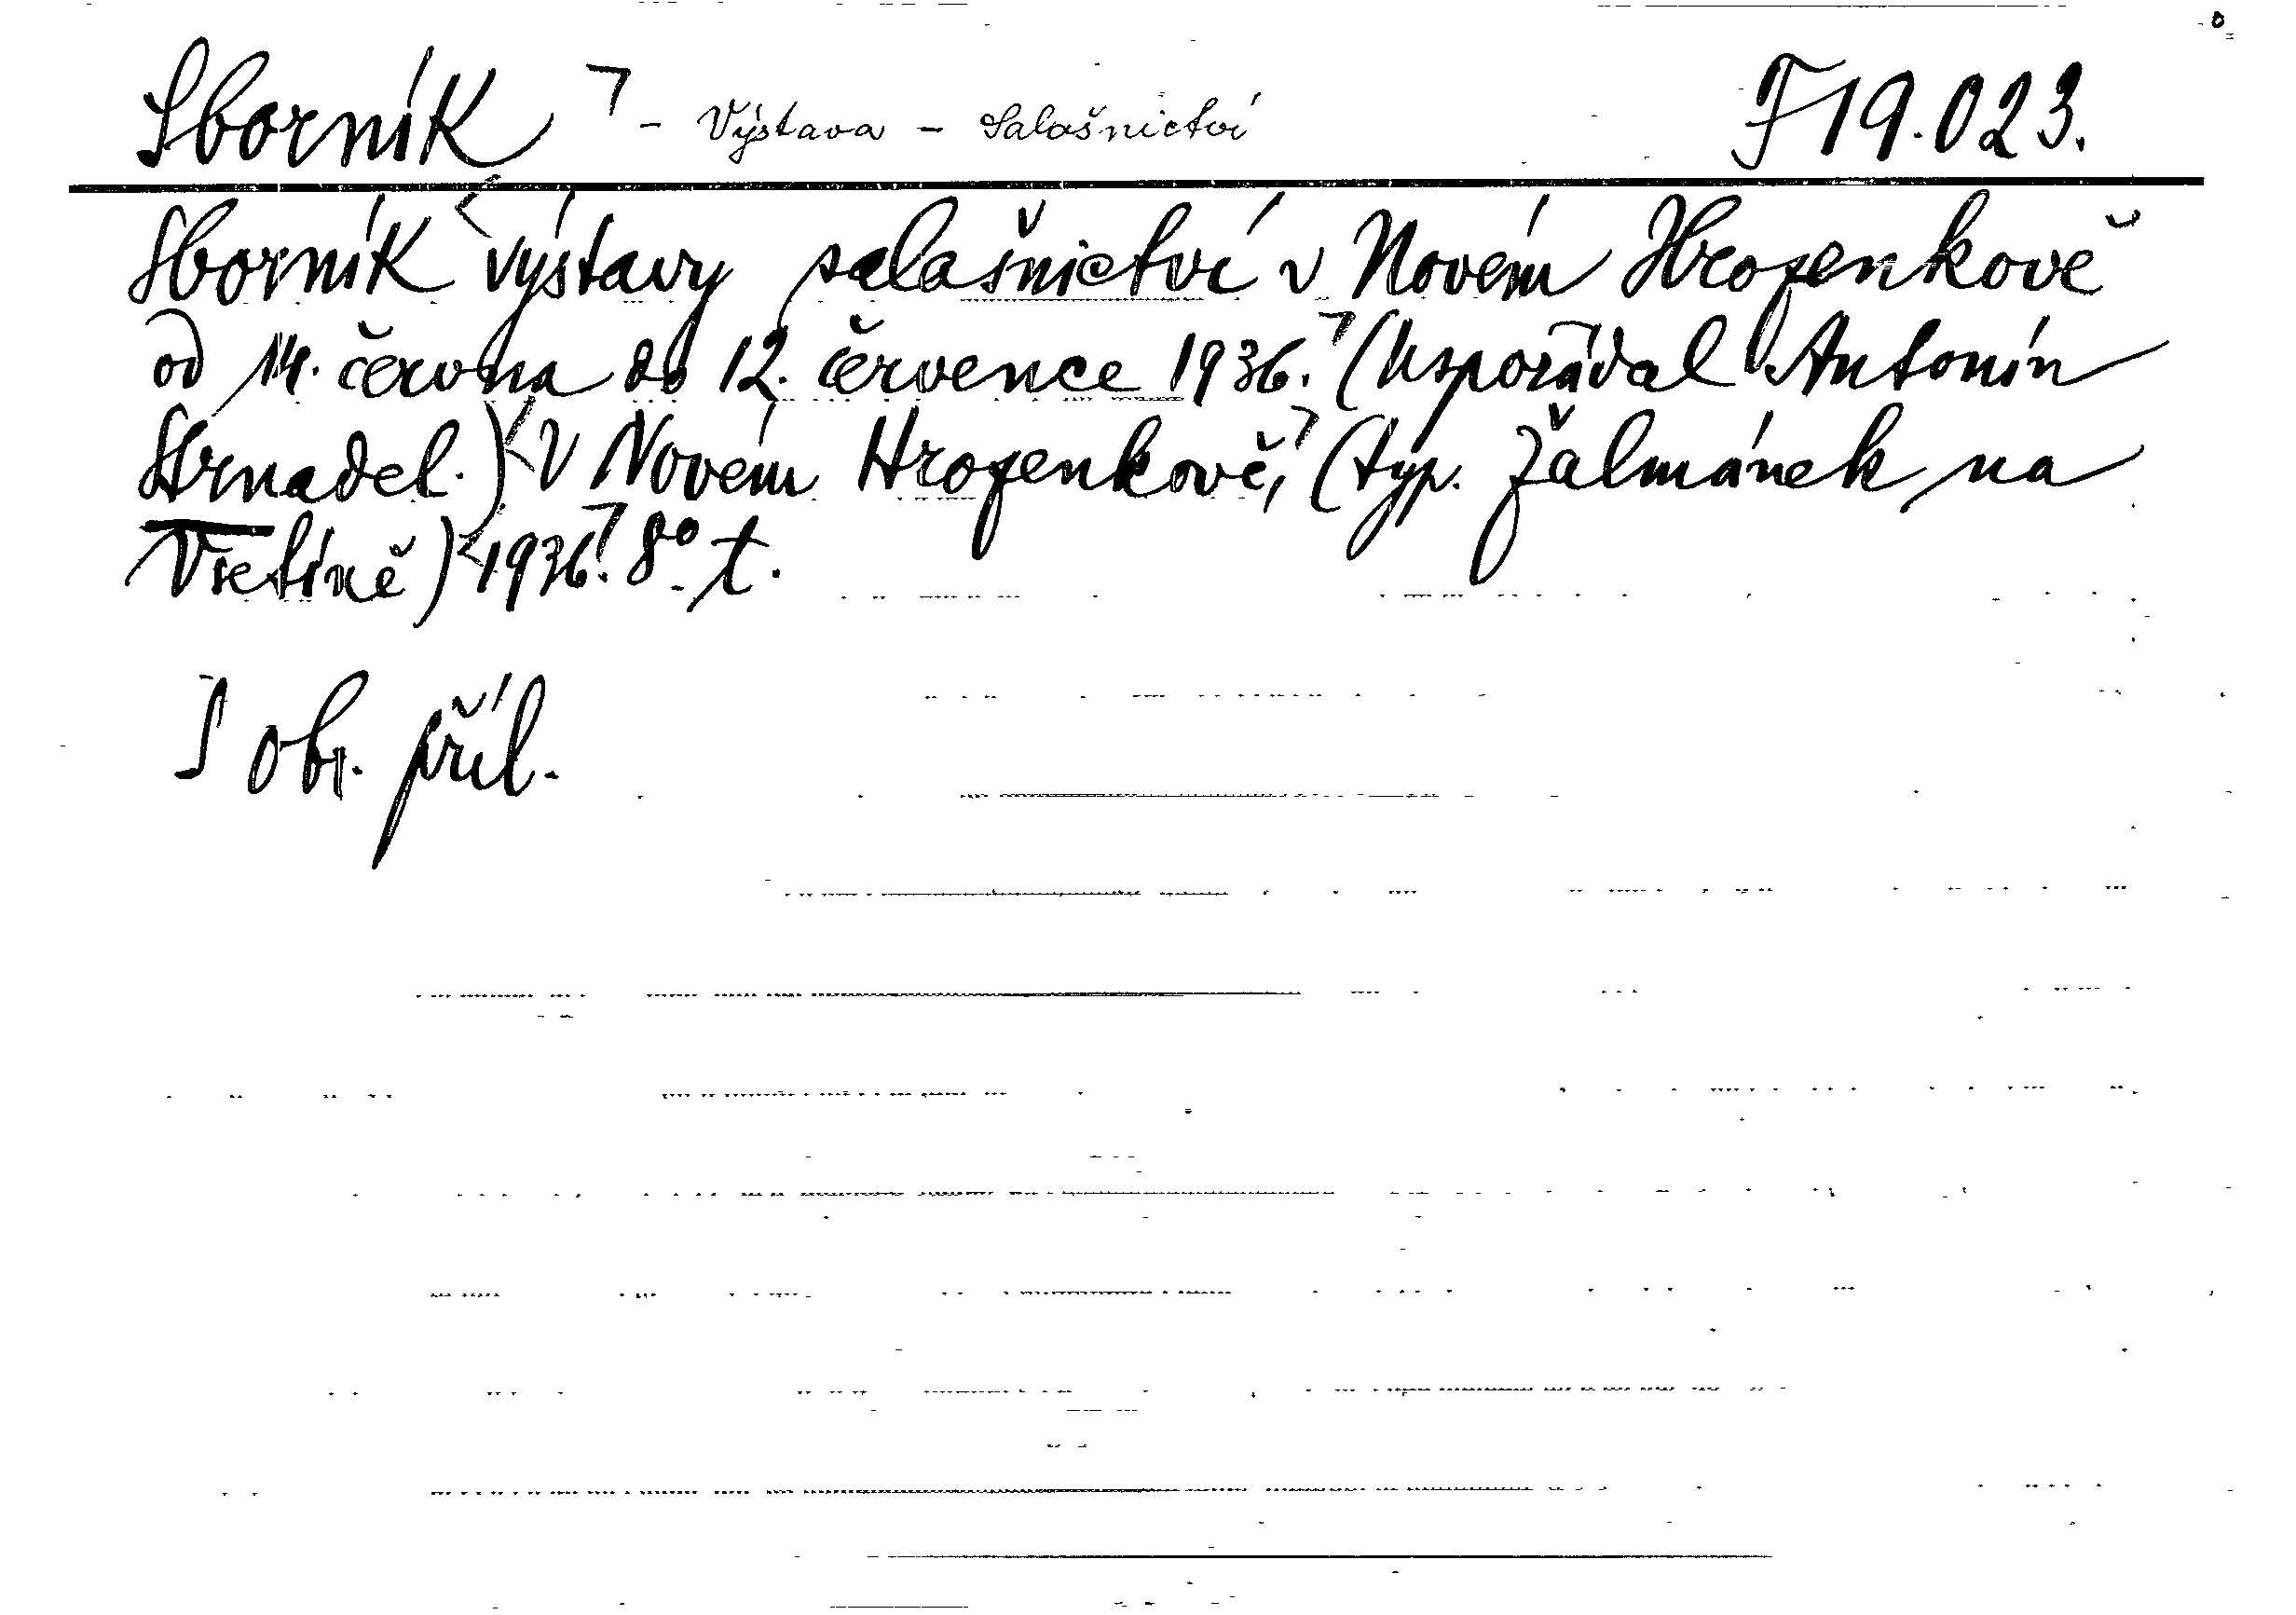 Sborník - Výstava - Salašnictví F 19.023.
Sborník výstavy salašnictví v Novém Hrozenkově
od 14. června do 12. července 1936. (Uspořádal Antonín
Strnadel.) V Novém Hrozenkově, (typ. Žalmánek na
Vsetíně) 1936. 8° t.
S obr. příl.